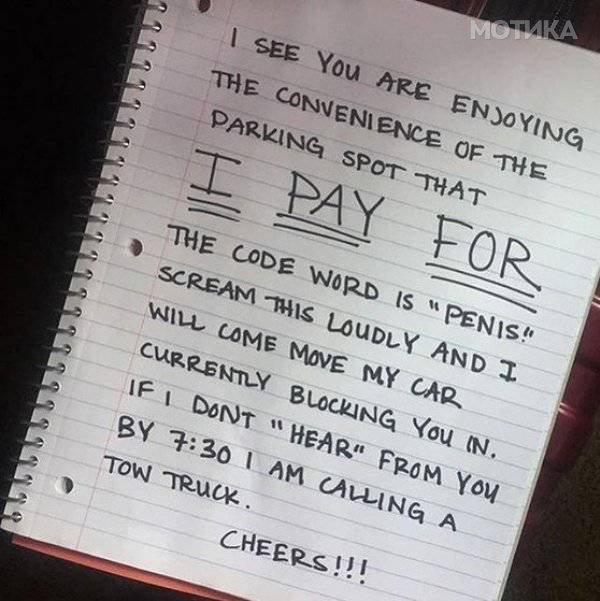 МОТИКА
I SEE YOU ARE ENJOYING
THE CONVENIENCE OF THE
PARKING SPOT THAT
I PAY FOR
THE CODE WORD IS "PENIS!"
SCREAM THIS LOUDLY AND I
WILL COME MOVE MY CAR
CURRENTLY BLOCKING YOU IN.
IF I DONT "HEAR" FROM YOU
BY 7:30 I AM CALLING A
TOW TRUCK.
CHEERS!!!